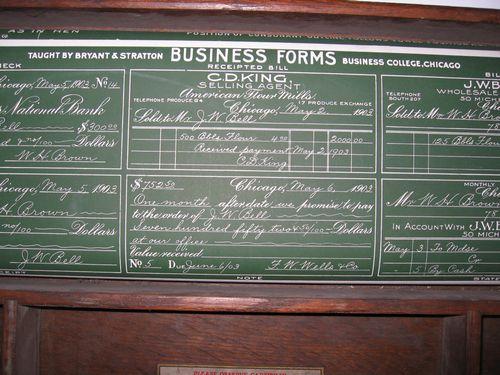 AS IN MEN
POSITION OF CONSONANT OUTL
TAUGHT BY BRYANT & STRATTON BUSINESS FORMS BUSINESS COLLEGE, CHICAGO
HECK
Chicago, May 5, 1903 No 14
National Bank
Bell $300.00
no/100 Dollars
W.H. Brown
RECEIPTED BILL
C.D. KING,
SELLING AGENT
American Flour Mills
TELEPHONE PRODUCE 84 17 PRODUCE EXCHANGE
Chicago, May 2, 1903
Sold to Mr. J.W. Bell
500 Bbls. Flour 4.00 2000.00
Received payment May 2, 1903
C.D. King
BIL
J.W.B
WHOLESALE
TELEPHONE
SOUTH 207
50 MICH
Chica
Sold to Mr. W.H. Brow
125 Bbls. Flour
Chicago, May 5, 1903
W.H. Brown
no/100 Dollars
J.W. Bell
RECEIPT
$752.50 Chicago, May 6, 1903
One month after date we promise to pay
to the order of J.W. Bell
Seven hundred fifty two & 50/100 Dollars
at our office
Value received
No 5 Due June 6/03 F.W. Wells & Co
NOTE
MONTHLY
Chic
Mr. W.H. Brown
IN ACCOUNT WITH J.W.B
50 MICH
May 3 To Mdse
Cr
5 By Cash
STA